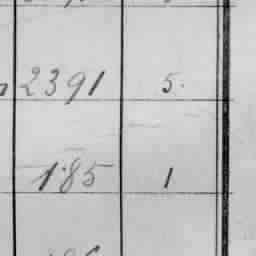 2391 5.
185 1